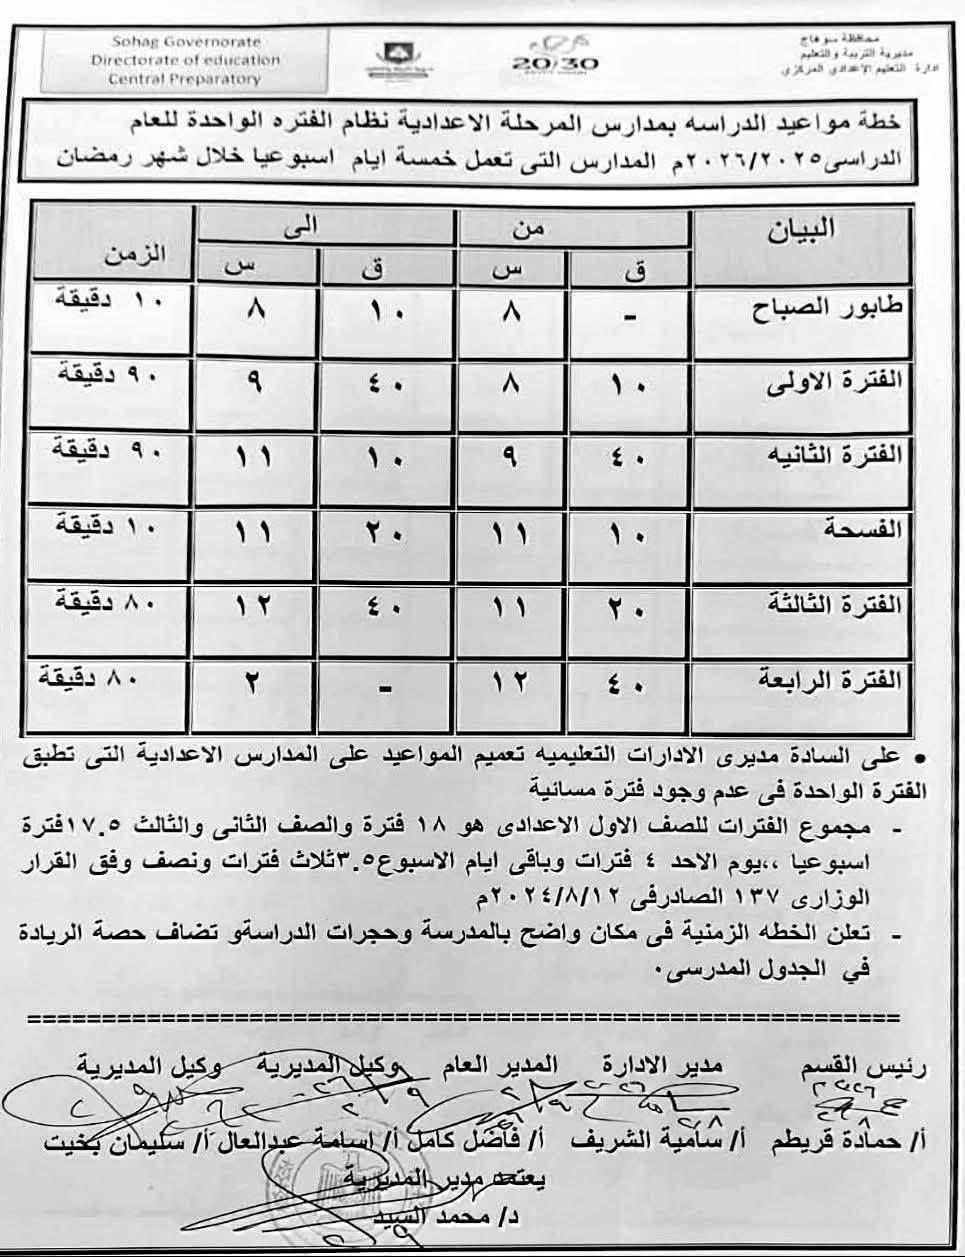 Sohag Governorate
Directorate of education
Central Preparatory
20/30
محافظة سوهاج
مديرية التربية والتعليم
ادارة التعليم الإعدادي المركزي
خطة مواعيد الدراسه بمدارس المرحلة الاعدادية نظام الفتره الواحدة للعام
الدراسى٢٠٢٦/٢٠٢٥م المدارس التى تعمل خمسة ايام اسبوعيا خلال شهر رمضان
البيان من الى الزمن
ق س ق س
طابور الصباح - ٨ ١٠ ٨ ١٠ دقيقة
الفترة الاولى ١٠ ٨ ٤٠ ٩ ٩٠ دقيقة
الفترة الثانيه ٤٠ ٩ ١٠ ١١ ٩٠ دقيقة
الفسحة ١٠ ١١ ٢٠ ١١ ١٠ دقيقة
الفترة الثالثة ٢٠ ١١ ٤٠ ١٢ ٨٠ دقيقة
الفترة الرابعة ٤٠ ١٢ - ٢ ٨٠ دقيقة
• على السادة مديرى الادارات التعليميه تعميم المواعيد على المدارس الاعدادية التى تطبق
الفترة الواحدة فى عدم وجود فترة مسائية
- مجموع الفترات للصف الاول الاعدادى هو ١٨ فترة والصف الثانى والثالث ١٧.٥فترة
اسبوعيا ،،يوم الاحد ٤ فترات وباقى ايام الاسبوع٣.٥ثلاث فترات ونصف وفق القرار
الوزارى ١٣٧ الصادرفى ٢٠٢٤/٨/١٢م
- تعلن الخطه الزمنية فى مكان واضح بالمدرسة وحجرات الدراسةو تضاف حصة الريادة
في الجدول المدرسى٠
==========================================================
رئيس القسم مدير الادارة المدير العام وكيل المديرية وكيل المديرية
أ/ حمادة قريطم أ/ سامية الشريف أ/ فاضل كامل أ/ اسامة عبدالعال أ/ سليمان بخيت
يعتمد مدير المديرية
د/ محمد السيد